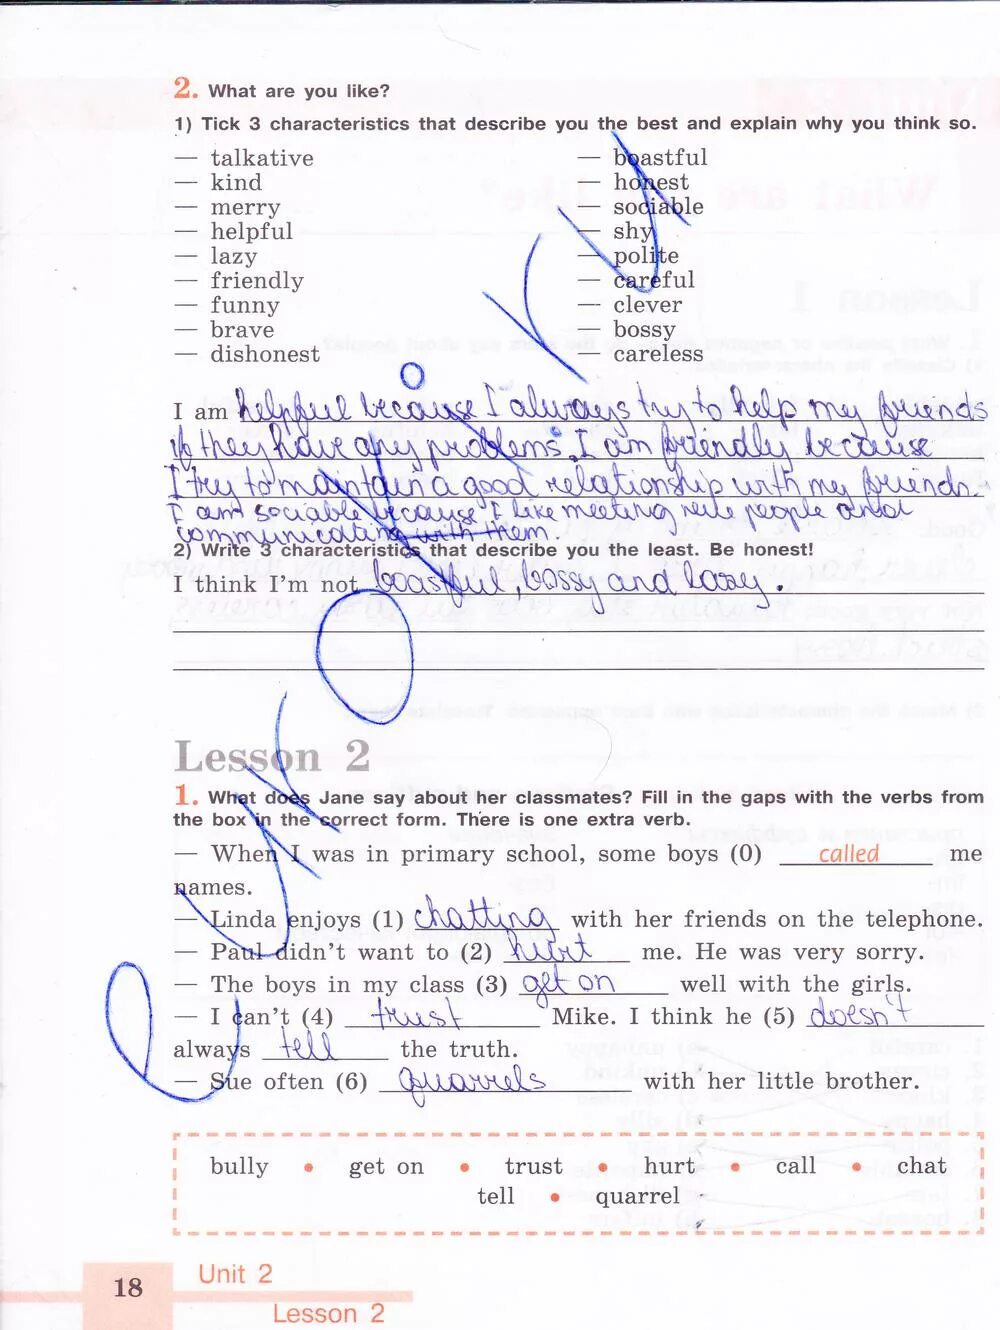 2. What are you like?
1) Tick 3 characteristics that describe you the best and explain why you think so.
— talkative
— kind
— merry
— helpful
— lazy
— friendly
— funny
— brave
— dishonest
— boastful
— honest
— sociable
— shy
— polite
— careful
— clever
— bossy
— careless
I am helpful because I always try to help my friends
if they have any problems. I am friendly because
I try to maintain a good relationship with my friends.
I am sociable because I like meeting new people and
communicating with them.
2) Write 3 characteristics that describe you the least. Be honest!
I think I'm not boastful, bossy and lazy.
Lesson 2
1. What does Jane say about her classmates? Fill in the gaps with the verbs from
the box in the correct form. There is one extra verb.
— When I was in primary school, some boys (0) called me
names.
— Linda enjoys (1) chatting with her friends on the telephone.
— Paul didn't want to (2) hurt me. He was very sorry.
— The boys in my class (3) get on well with the girls.
— I can't (4) trust Mike. I think he (5) doesn't
always tell the truth.
— Sue often (6) quarrels with her little brother.
bully • get on • trust • hurt • call • chat
tell • quarrel
18 Unit 2
Lesson 2